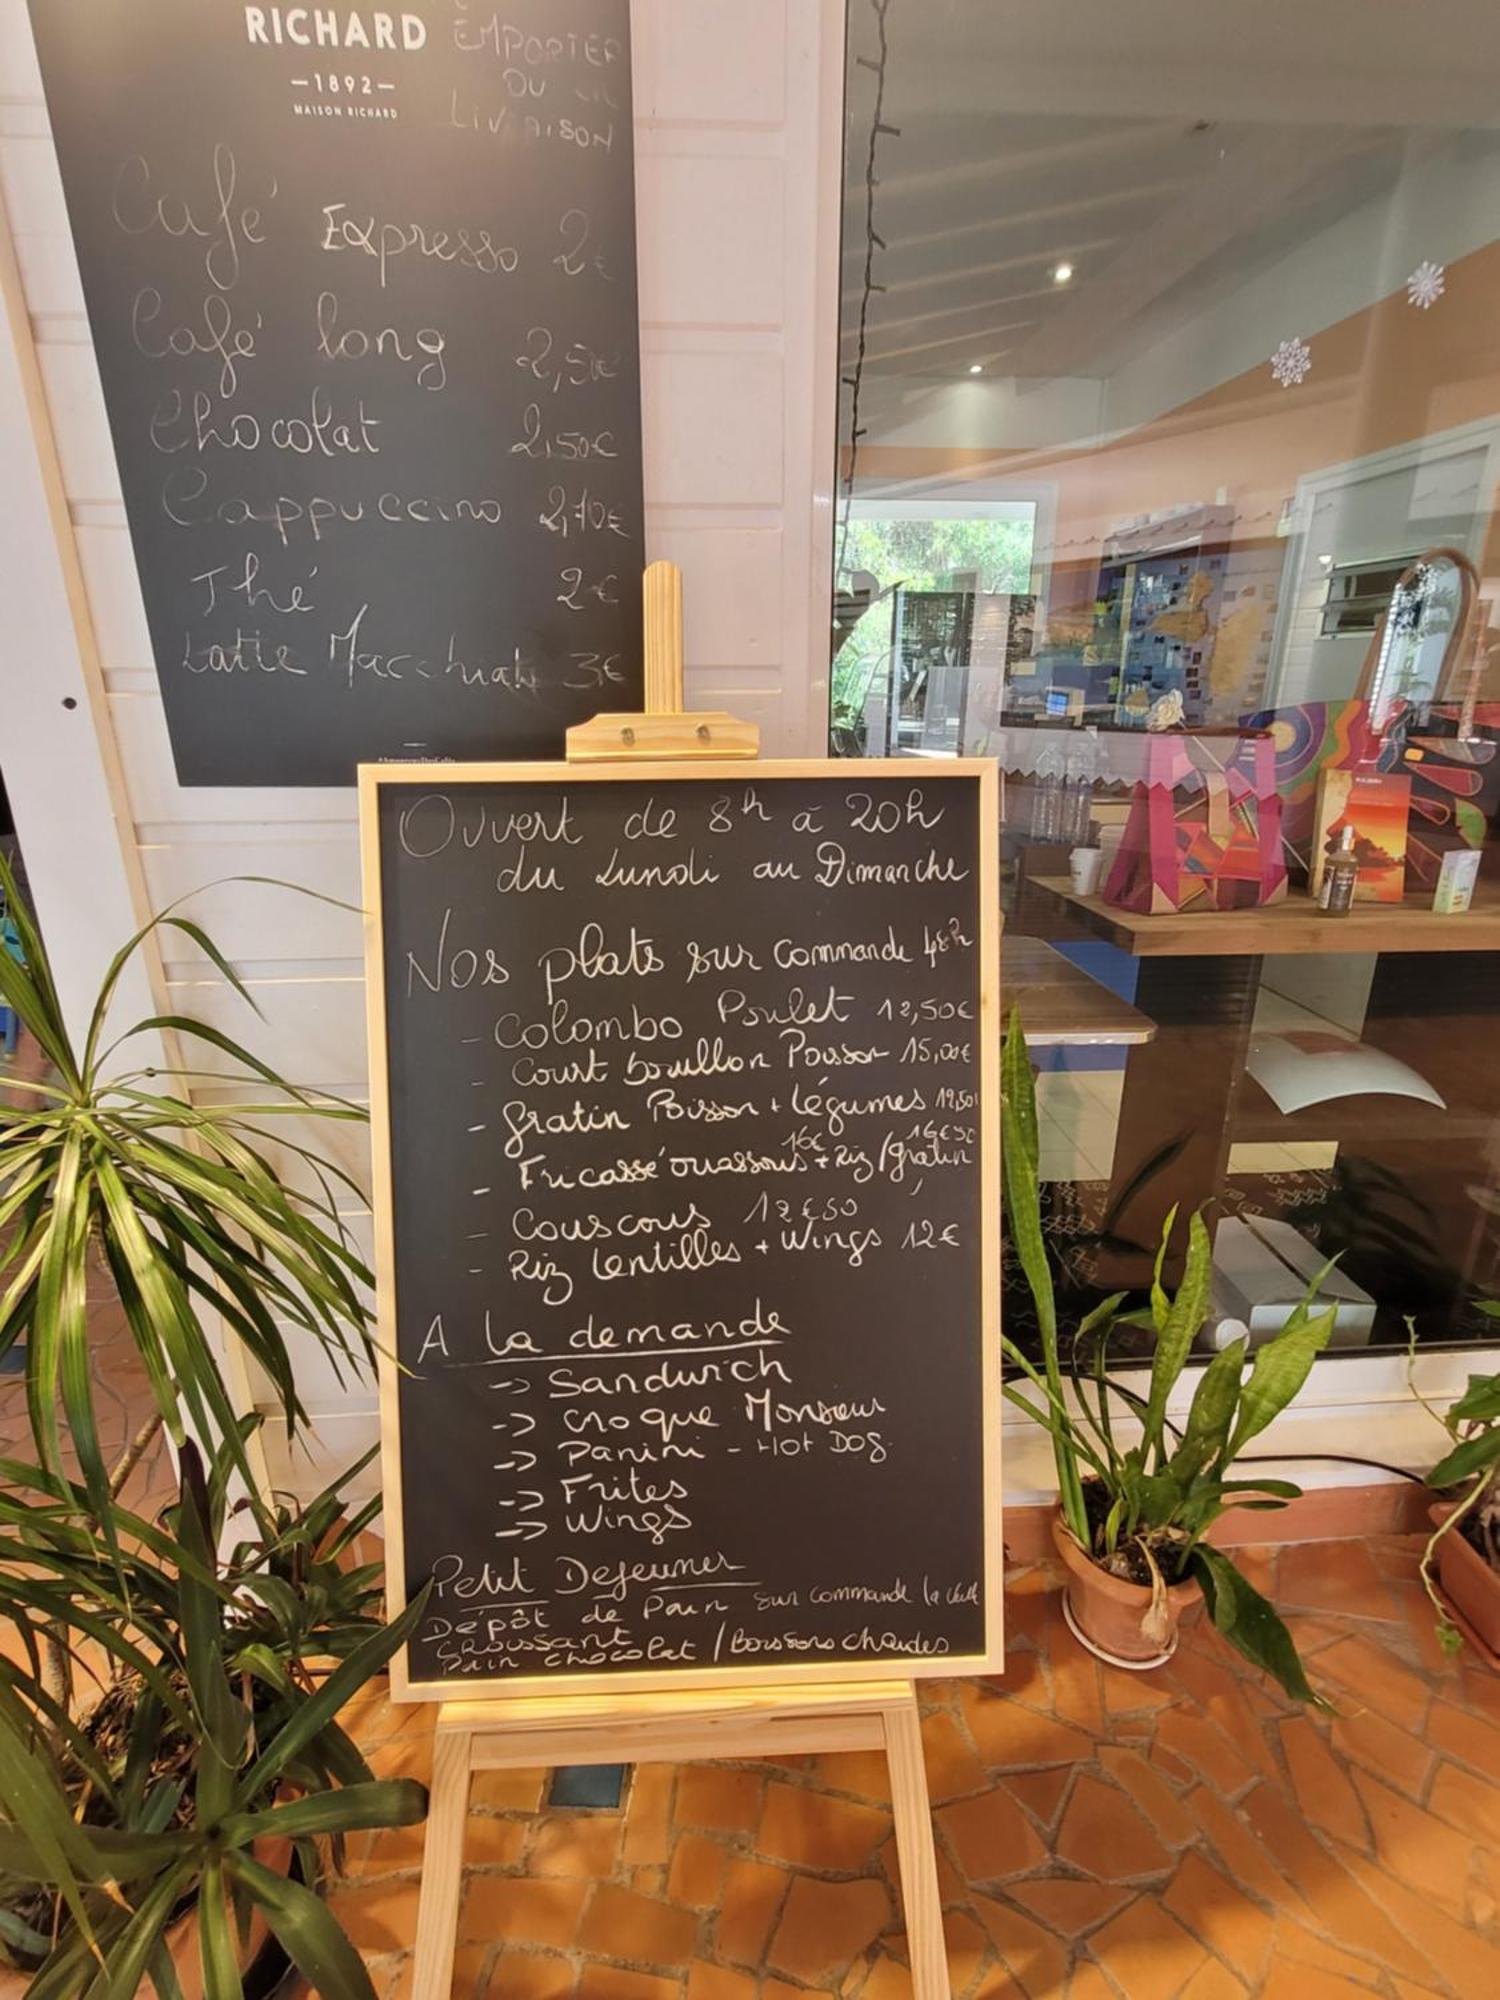 RICHARD
—1892—
MAISON RICHARD
EMPORTER
OU EN
LIVRAISON
Café Expresso 2€
Café long 2,50€
Chocolat 2,50€
Cappuccino 2,70€
Thé 2€
Latte Macchiato 3€
Ouvert de 8h à 20h
du Lundi au Dimanche
Nos plats sur commande 48h
- Colombo Poulet 12,50€
- Court bouillon Poisson 15,00€
- gratin Poisson + Légumes 12,50
16€ 16€50
- Fricassé ouassous + Riz / gratin
- Couscous 12€50
- Riz Lentilles + Wings 12€
A la demande
-> Sandwich
-> Croque Monsieur
-> Panini - Hot Dog
-> Frites
-> Wings
Petit Dejeuner
Dépôt de Pain sur commande la veille
Croissant
Pain chocolat / Boissons chaudes